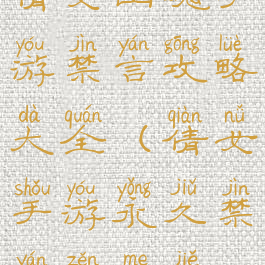 yóu jìn yán gōng lüè
游禁言攻略
dà quán qiàn nǚ
大全（倩女
shǒu yóu yǒng jiǔ jìn
手游永久禁
yán zěn me jiě